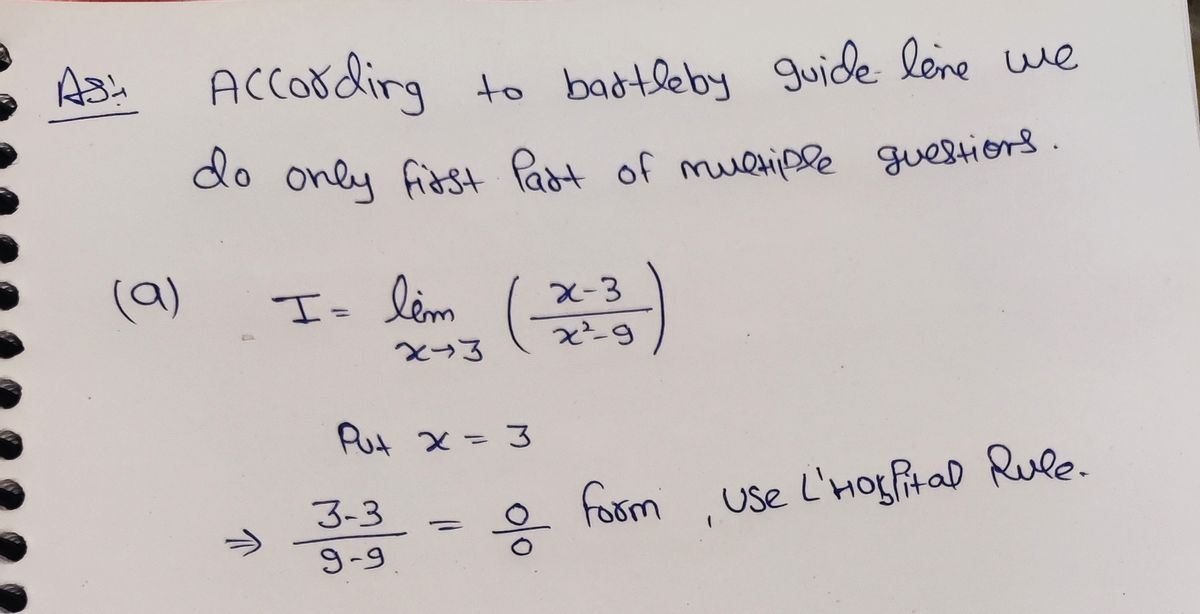 As:- According to bartleby guide line we
do only first Part of multiple questions.
(a) I = lim ( x-3 / x²-9 )
x→3
Put x = 3
⇒ 3-3 / 9-9 = 0/0 form , use L'Hospital Rule.